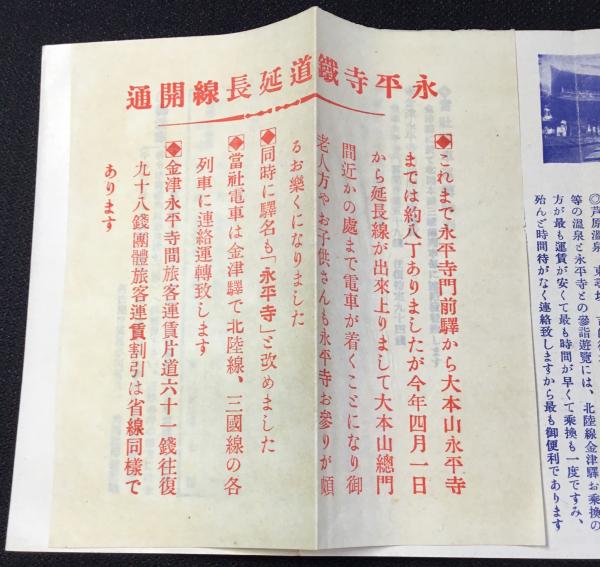 永平寺鐵道延長線開通
◆これまで永平寺門前驛から大本山永平寺
までは約八丁ありましたが今年四月一日
から延長線が出來上りまして大本山總門
間近かの處まで電車が着くことになり御
老人方やお子供さんも永平寺お參りが頗
るお樂くになりました
◆同時に驛名も「永平寺」と改めました
◆當社電車は金津驛で北陸線、三國線の各
列車に連絡運轉致します
◆金津永平寺間旅客運賃片道六十一錢往復
九十八錢團體旅客運賃割引は省線同樣で
あります
◎芦原溫泉、東尋坊、
等の溫泉と永平寺との參詣遊覽には、北陸線金津驛お乘換の
方が最も運賃が安くて最も時間が早くて乘換も一度ですみ、
殆んど時間待がなく連絡致しますから最も御便利であります